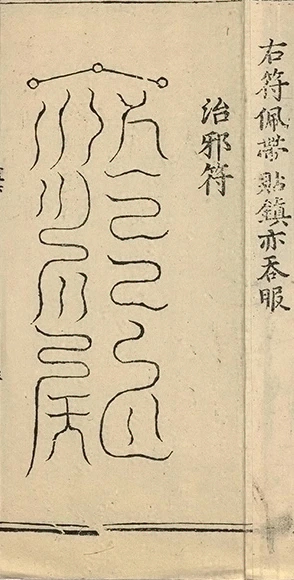 右符佩帶貼鎮亦吞服
治邪符